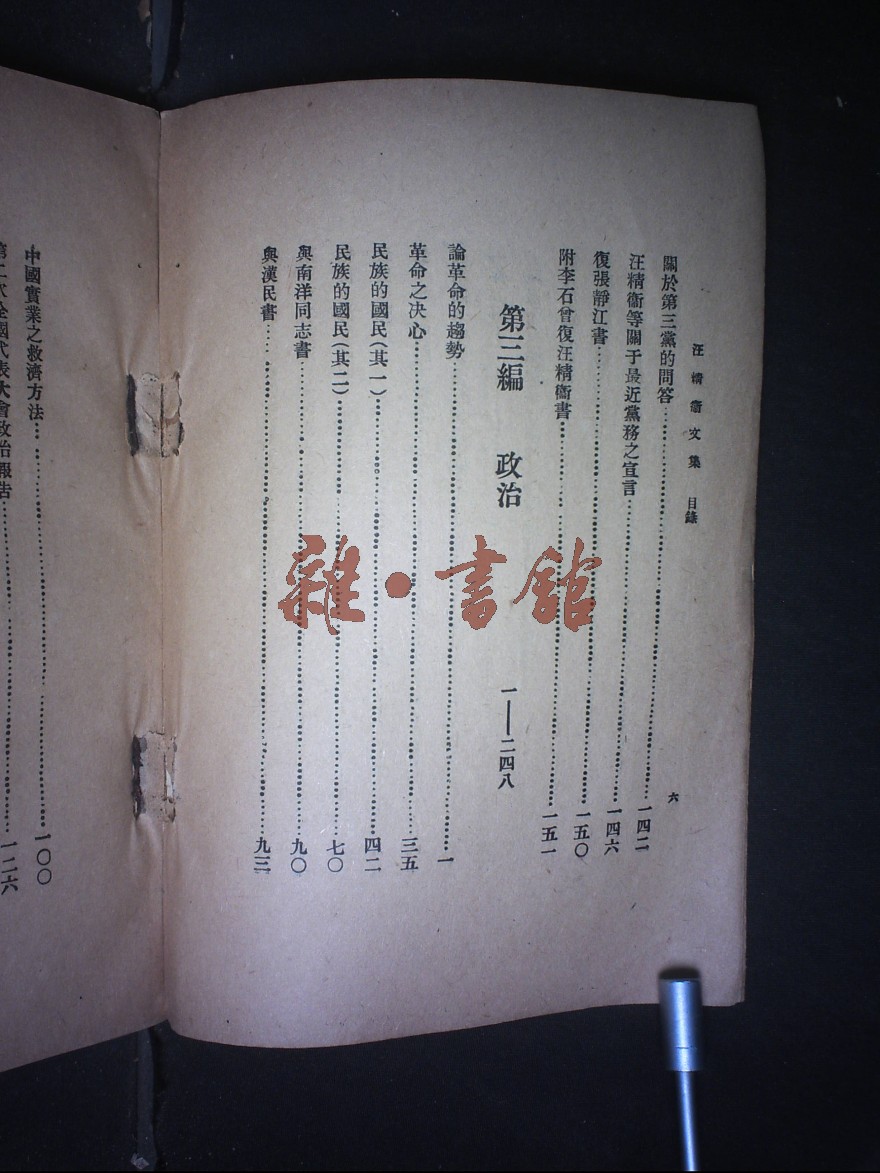 汪精衞文集 目錄
六
關於第三黨的問答 一四二
汪精衞等關于最近黨務之宣言 一四六
復張靜江書 一五〇
附李石曾復汪精衞書 一五一
第三編 政治 一——二四八
論革命的趨勢 一
革命之決心 三五
民族的國民(其一) 四二
民族的國民(其二) 七〇
與南洋同志書 九〇
與漢民書 九三
中國實業之救濟方法 一〇〇
第二次全國代表大會政治報告 一二六
雜·書館